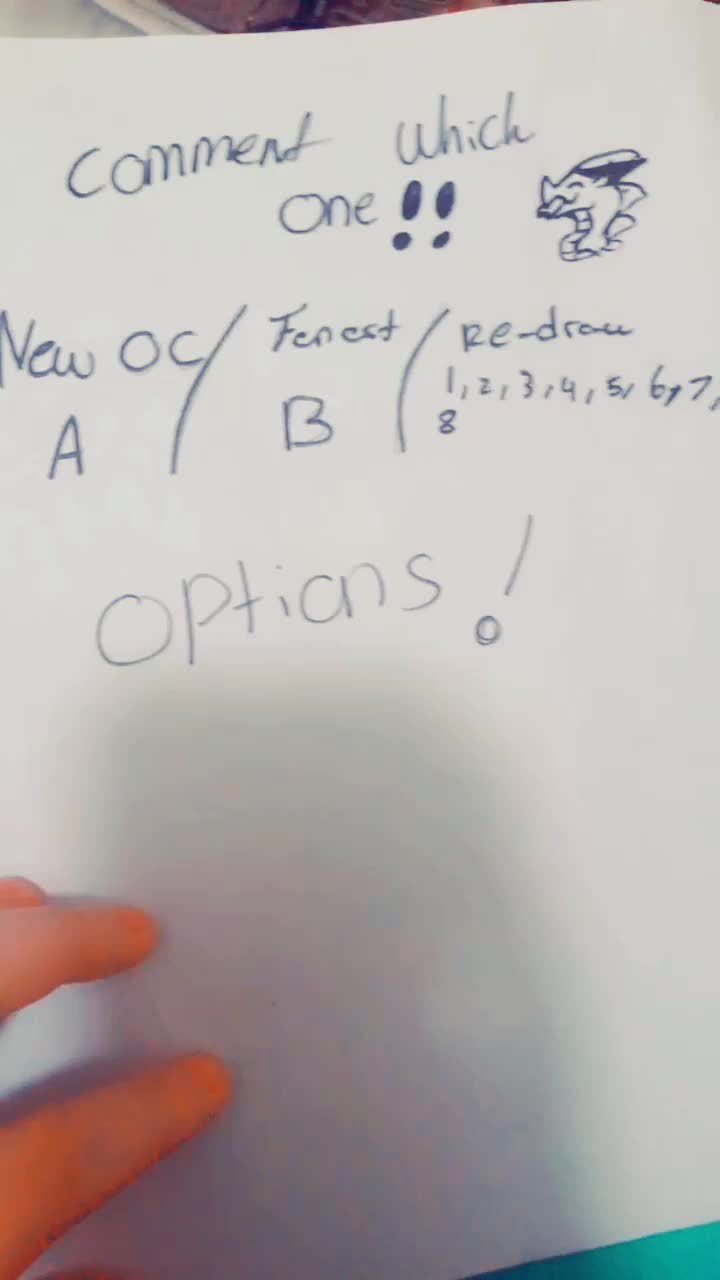 Comment Which
One !!
New OC / Forest / Re-draw
A B 1, 2, 3, 4, 5, 6, 7,
8
Options!